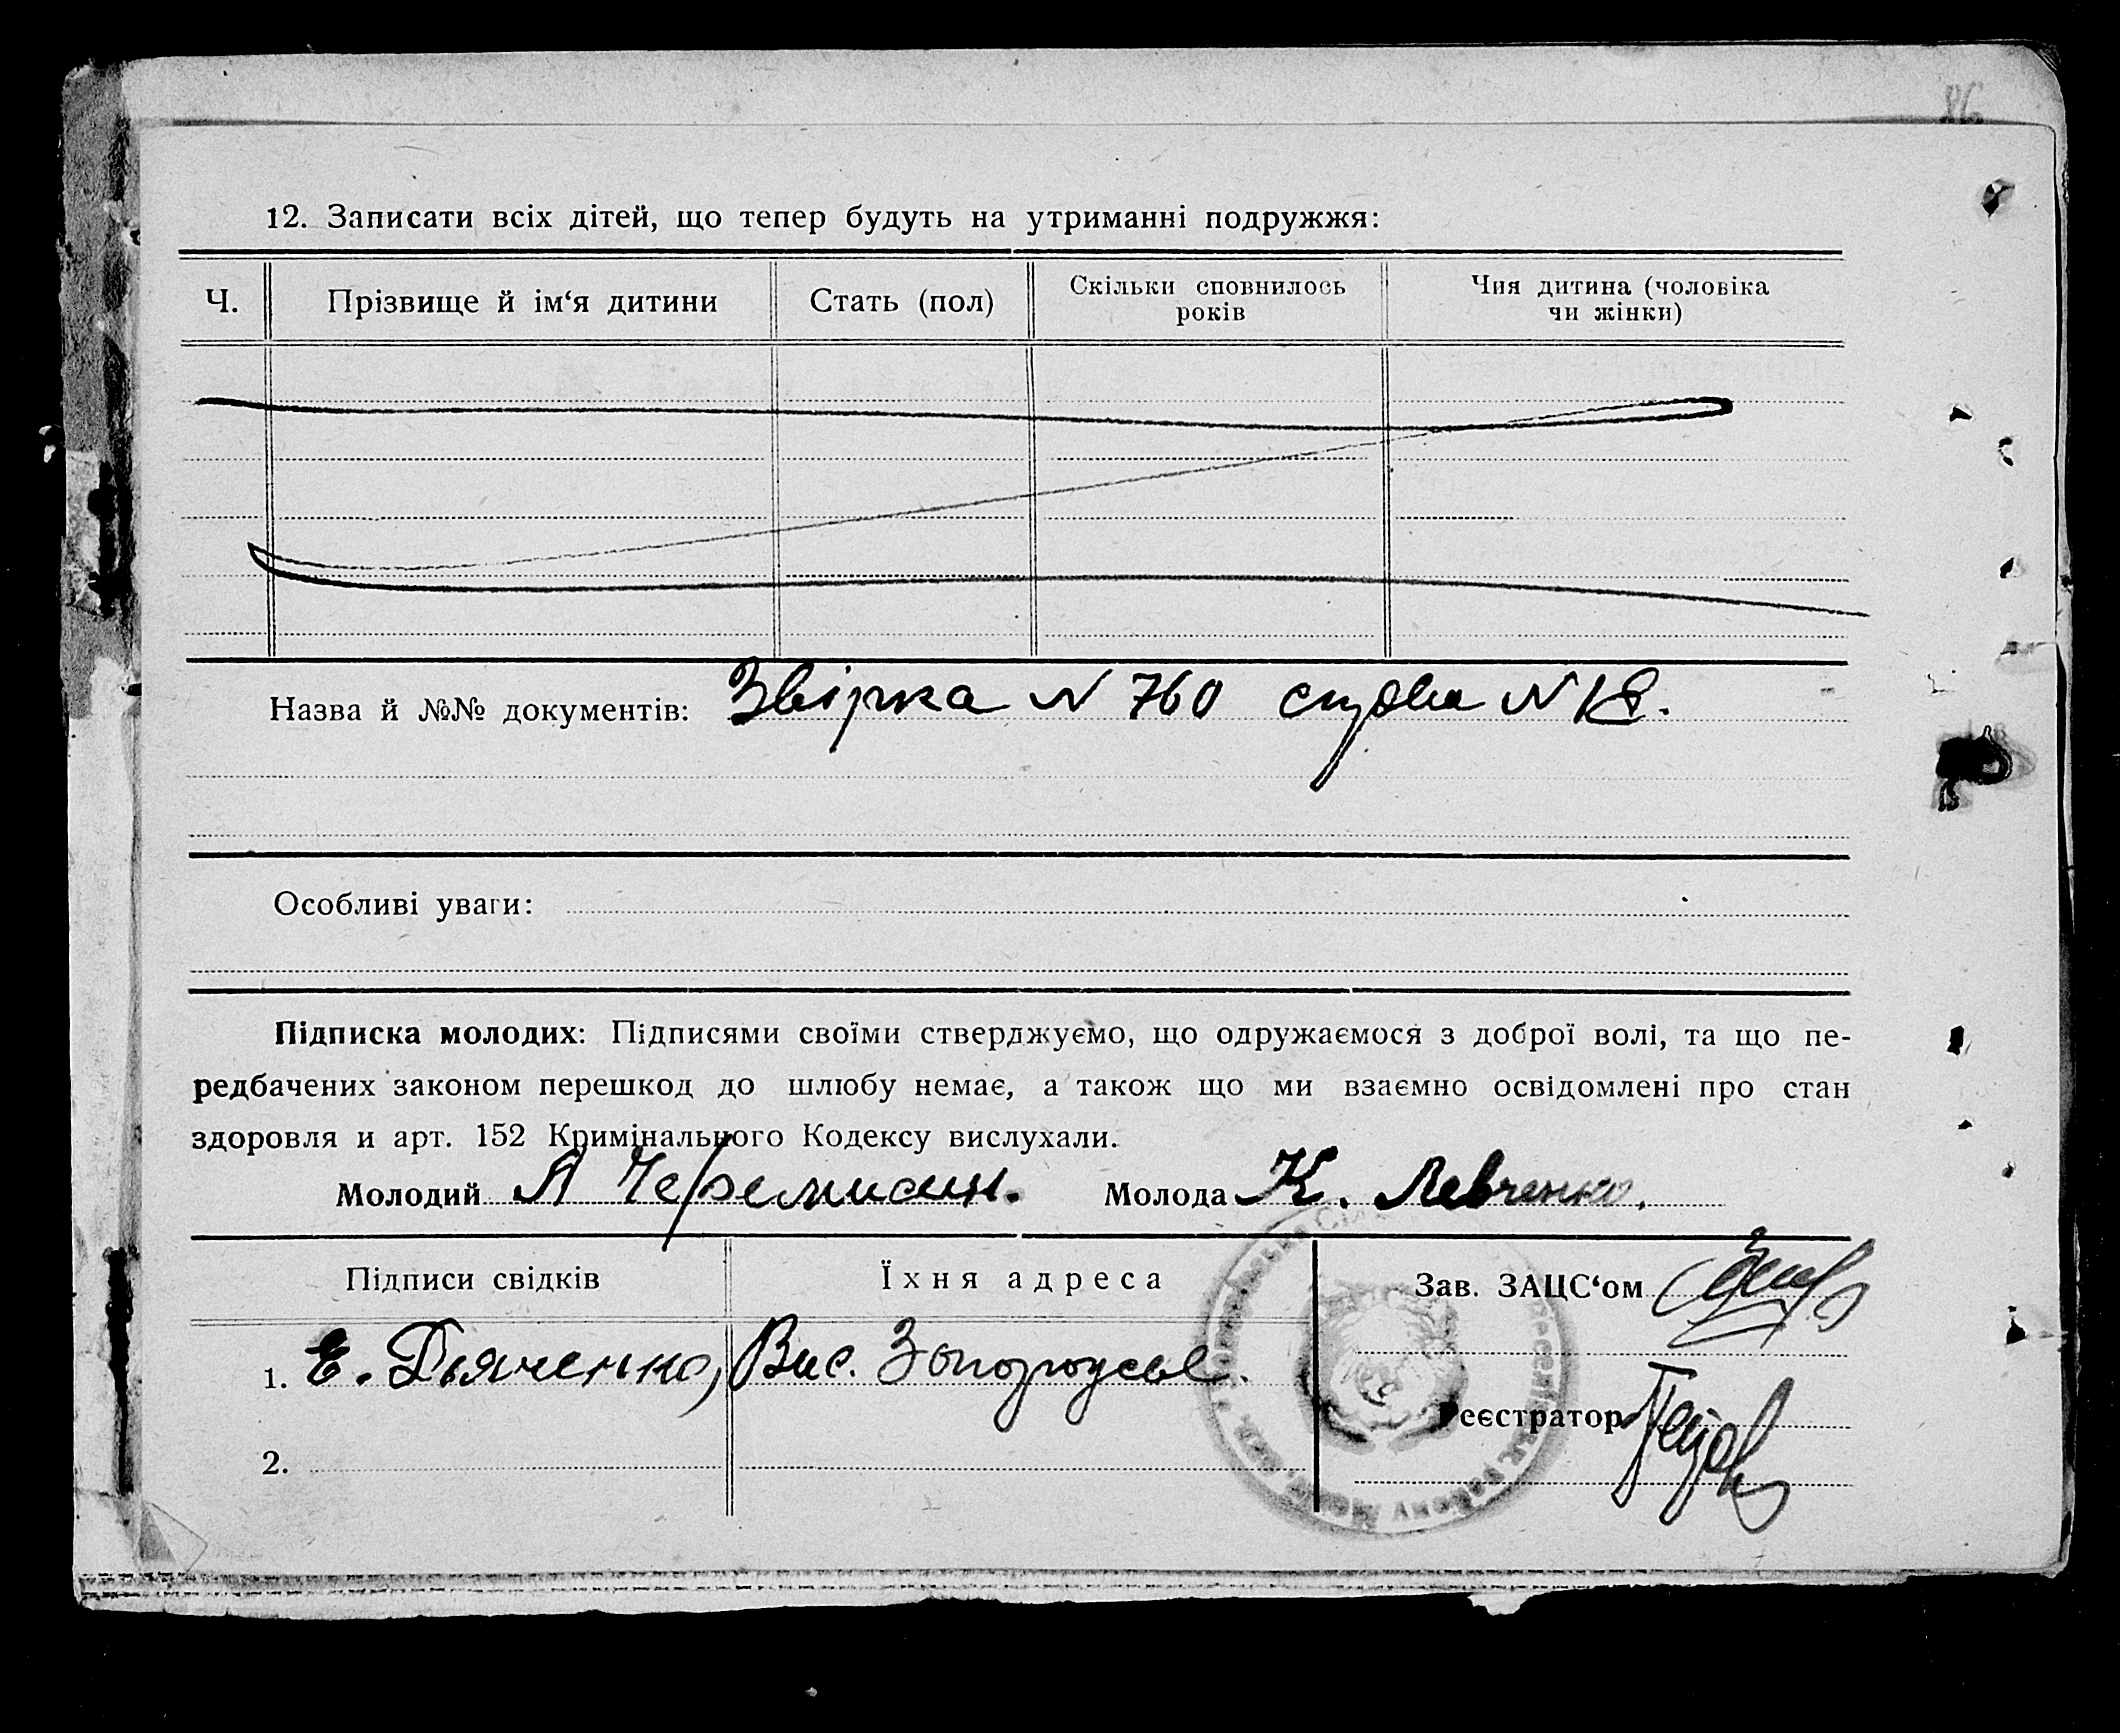 86
12. Записати всіх дітей, що тепер будуть на утриманні подружжя:
Ч. Прізвище й ім‘я дитини Стать (пол) Скільки сповнилось років Чия дитина (чоловіка чи жінки)
Назва й №№ документів: Звірка N 760 N
Особливі уваги:
Підписка молодих: Підписями своїми стверджуємо, що одружаємося з доброї волі, та що пе-
редбачених законом перешкод до шлюбу немає, а також що ми взаємно освідомлені про стан
здоровля и арт. 152 Кримінального Кодексу вислухали.
Молодий А Черемисин. Молода К. Левченко.
Підписи свідків Їхня адреса Зав. ЗАЦС‘ом
1. Е. Дьяченко, Вис.
Реєстратор
2.